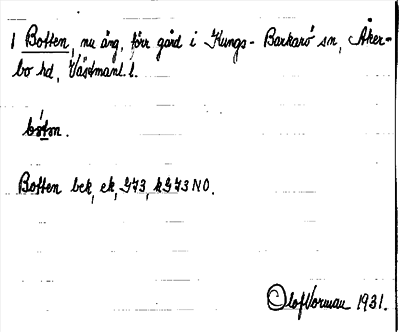 1 Botten, nu äng, förr gård i Kungs-Barkarö sn, Åker-
bo hd, Västmanl. l.
bòtən.
Botten bek, ek, G73, kG73NO.
Olof Vorman 1931.